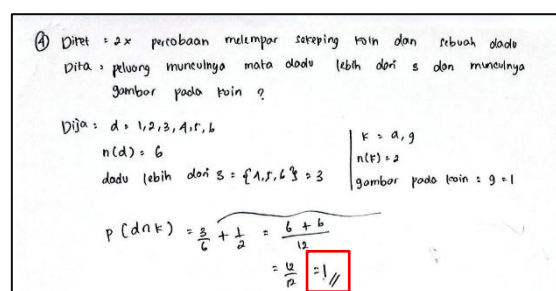 ④ Diket : 2x percobaan melempar sekeping koin dan sebuah dadu
Dita : peluang munculnya mata dadu lebih dari 3 dan munculnya
gambar pada koin ?
Dija : d = 1,2,3,4,5,6
n(d) = 6
dadu lebih dari 3 = {4,5,6} = 3
k = a, g
n(k) = 2
gambar pada koin : g = 1
P (d∩k) = 3/6 + 1/2 = (6 + 6)/12
= 12/12 = 1 //